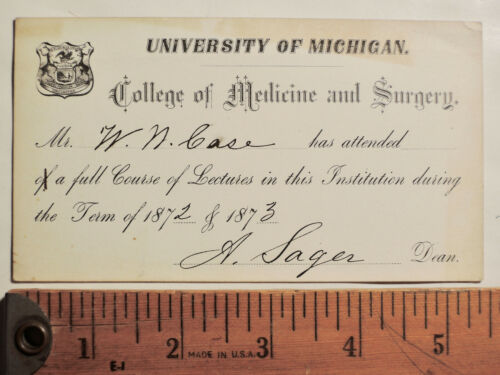 UNIVERSITY OF MICHIGAN.
College of Medicine and Surgery.
Mr. W. N. Case has attended
of a full Course of Lectures in this Institution during
the Term of 1872 & 1873
A. Sager Dean.
1 2 3 4 5
E-1 MADE IN U.S.A.